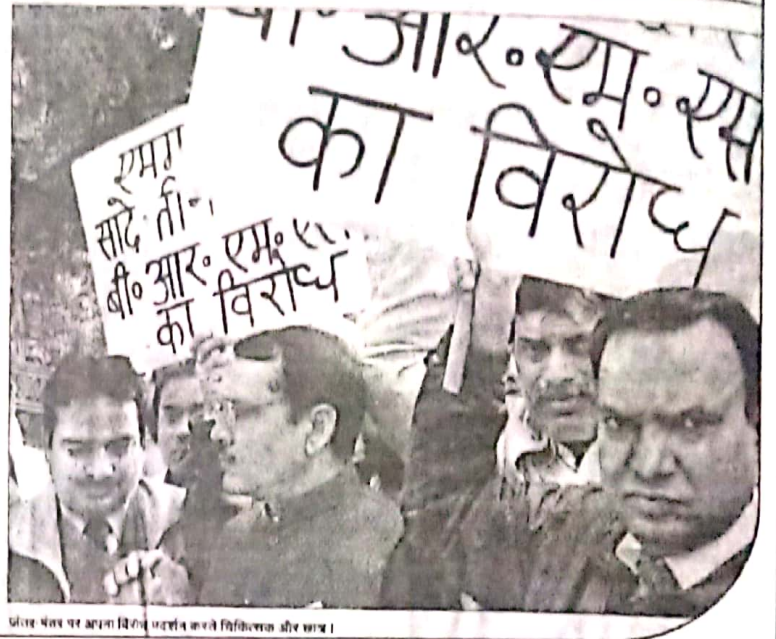 बी॰आर॰एम॰एस
का विरोध
एमग
साढे ती
बी॰ आर॰ एम॰ एस.
का विरोध
जंतर-मंतर पर अपना विरोध प्रदर्शन करते चिकित्सक और छात्र।